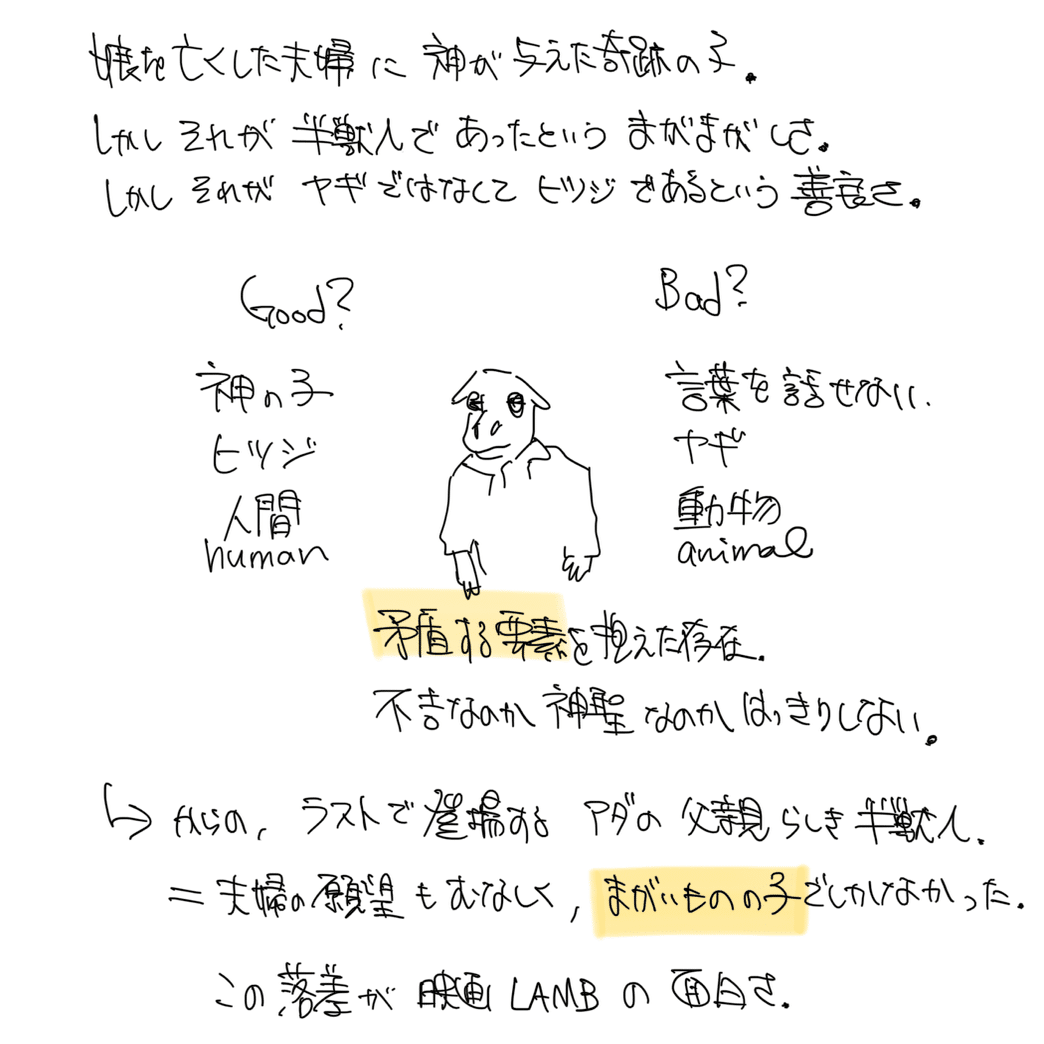 娘を亡くした夫婦に神が与えた奇跡の子.
しかしそれが半獣人であったというまがまがしさ.
しかしそれがヤギではなくてヒツジであるという善良さ.
Good?
Bad?
神の子
言葉を話せない.
ヒツジ
ヤギ
人間
動物
human
animal
矛盾する要素を抱えた存在.
不吉なのか神聖なのかはっきりしない.
↳からの,ラストで登場するアダの父親らしき半獣人.
=夫婦の願望もむなしく,まがいものの子でしかなかった.
この落差が映画LAMBの面白さ.